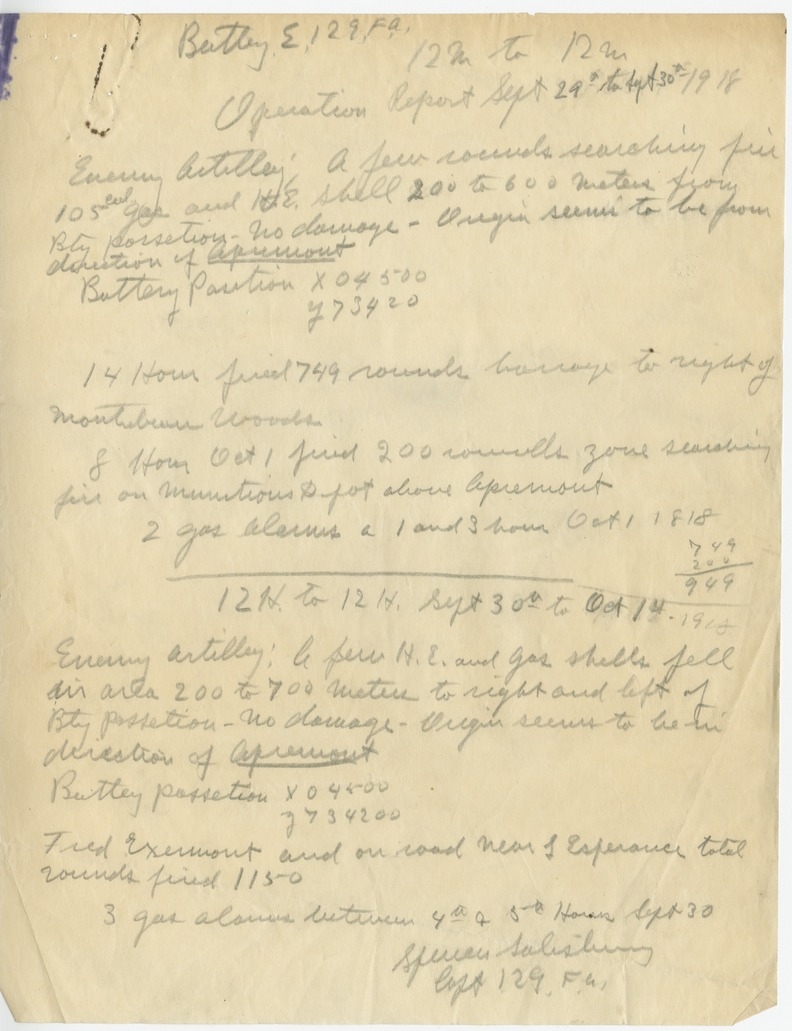 Battey E, 129, F.A.
12M to 12M
Operation Report Sept 29th to Sept 30th 1918
Enemy Artilley; A few rounds searching fire
105 cal gas and H.E. shell 200 to 600 meters from
Bty possetion - No damage - Origin seems to be from
direction of Apremont
Battery Position X 04500
Y 73420
14 Hour fired 749 rounds barrage to right of
Montrebeau Woods
8 Hour Oct 1 fired 200 rounds zone searching
fire on Munitions Depot above Apremont
2 gas alarms a 1 and 3 hour Oct 1 1818
749
200
949
12H. to 12H. Sept 30th to Oct 1st - 1918
Enemy Artilley; A few H.E. and gas shells fell
in area 200 to 700 meters to right and left of
Bty possetion - No damage - Origin seems to be in
direction of Apremont
Battey possetion X 04500
Y 734200
Fred Exermont and on road near L Esperance total
rounds fired 1150
3 gas alarms between 4th & 5th Hours Sept 30
Spencer Salisbury
Capt 129, F.A.